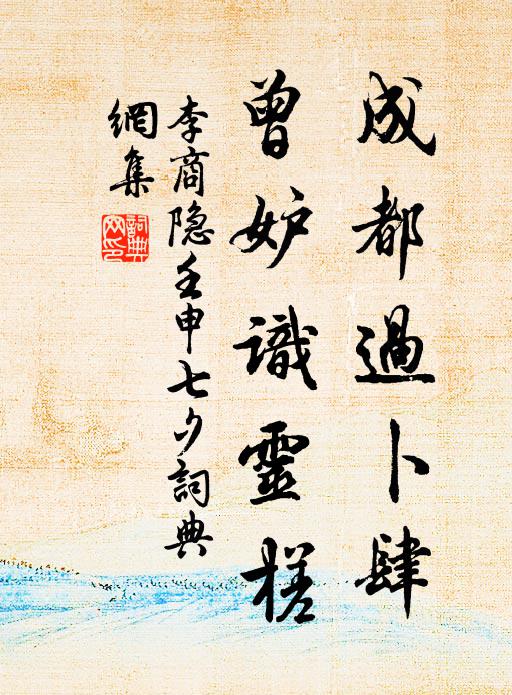 成都過卜肆
曾妒識靈槎
李商隐壬申七夕詞典
網集
詞典網印